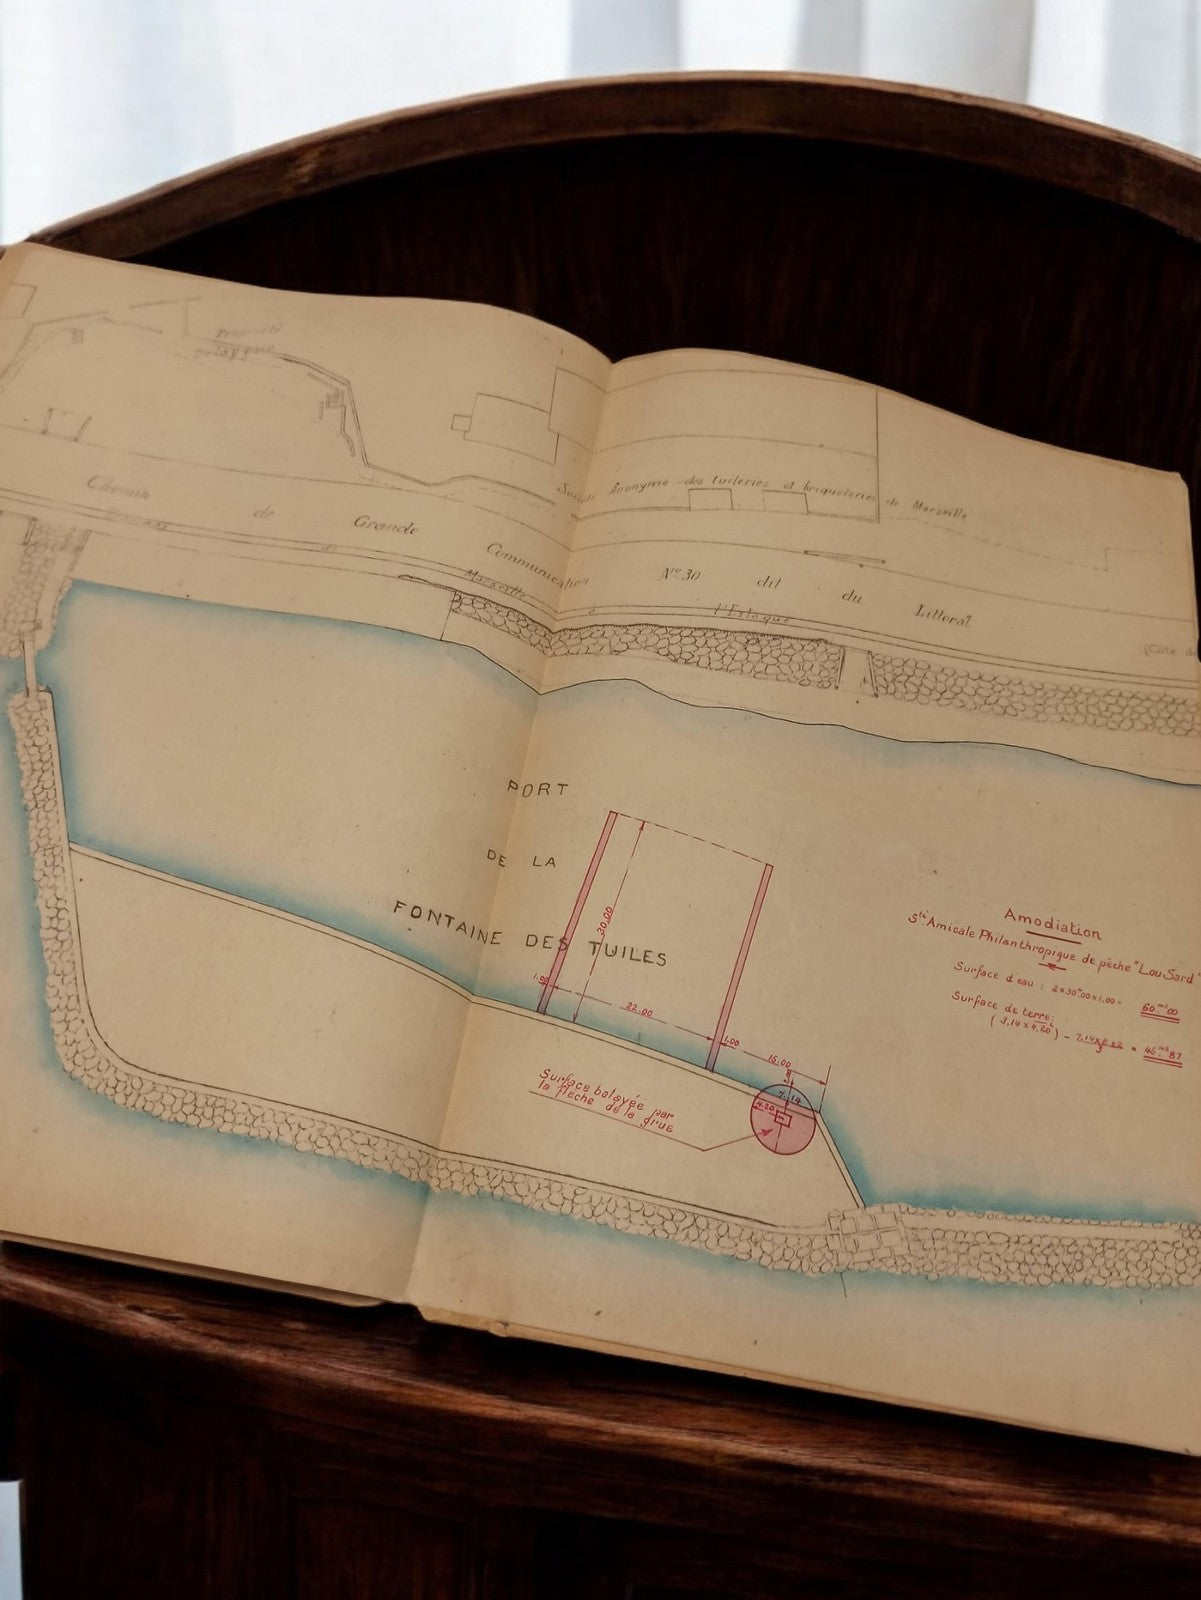 Propriété
privée
Société Anonyme des tuileries et briqueteries de Marseille
Chemin de Grande Communication N° 30 dit du Littoral
de Marseille à l'Estaque
(Côté de
PORT
DE LA
FONTAINE DES TUILES
30.00
1.00
22.00
1.00
15.00
2.00
7.14
4.20
Surface balayée par
la flèche de la grue
Amodiation
Sté Amicale Philanthropique de pêche "Lou Sard"
Surface d'eau : 2x30m00x1.00 = 60m²00
Surface de terre:
(3,14 x 4,20²) - 7.14x2x2 / 3 = 45m²87